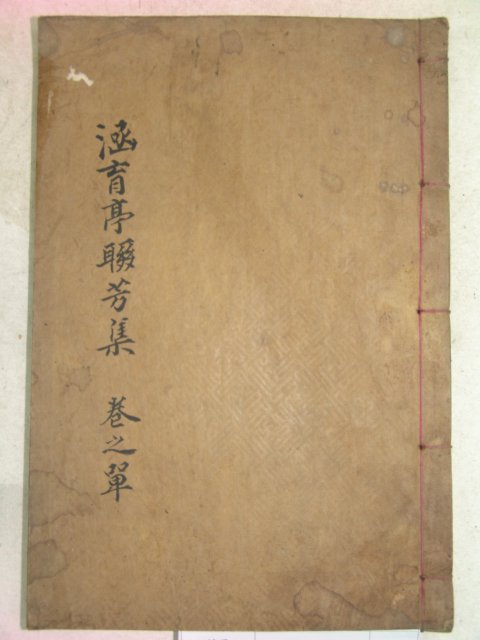 涵育亭聯芳集 巻之單